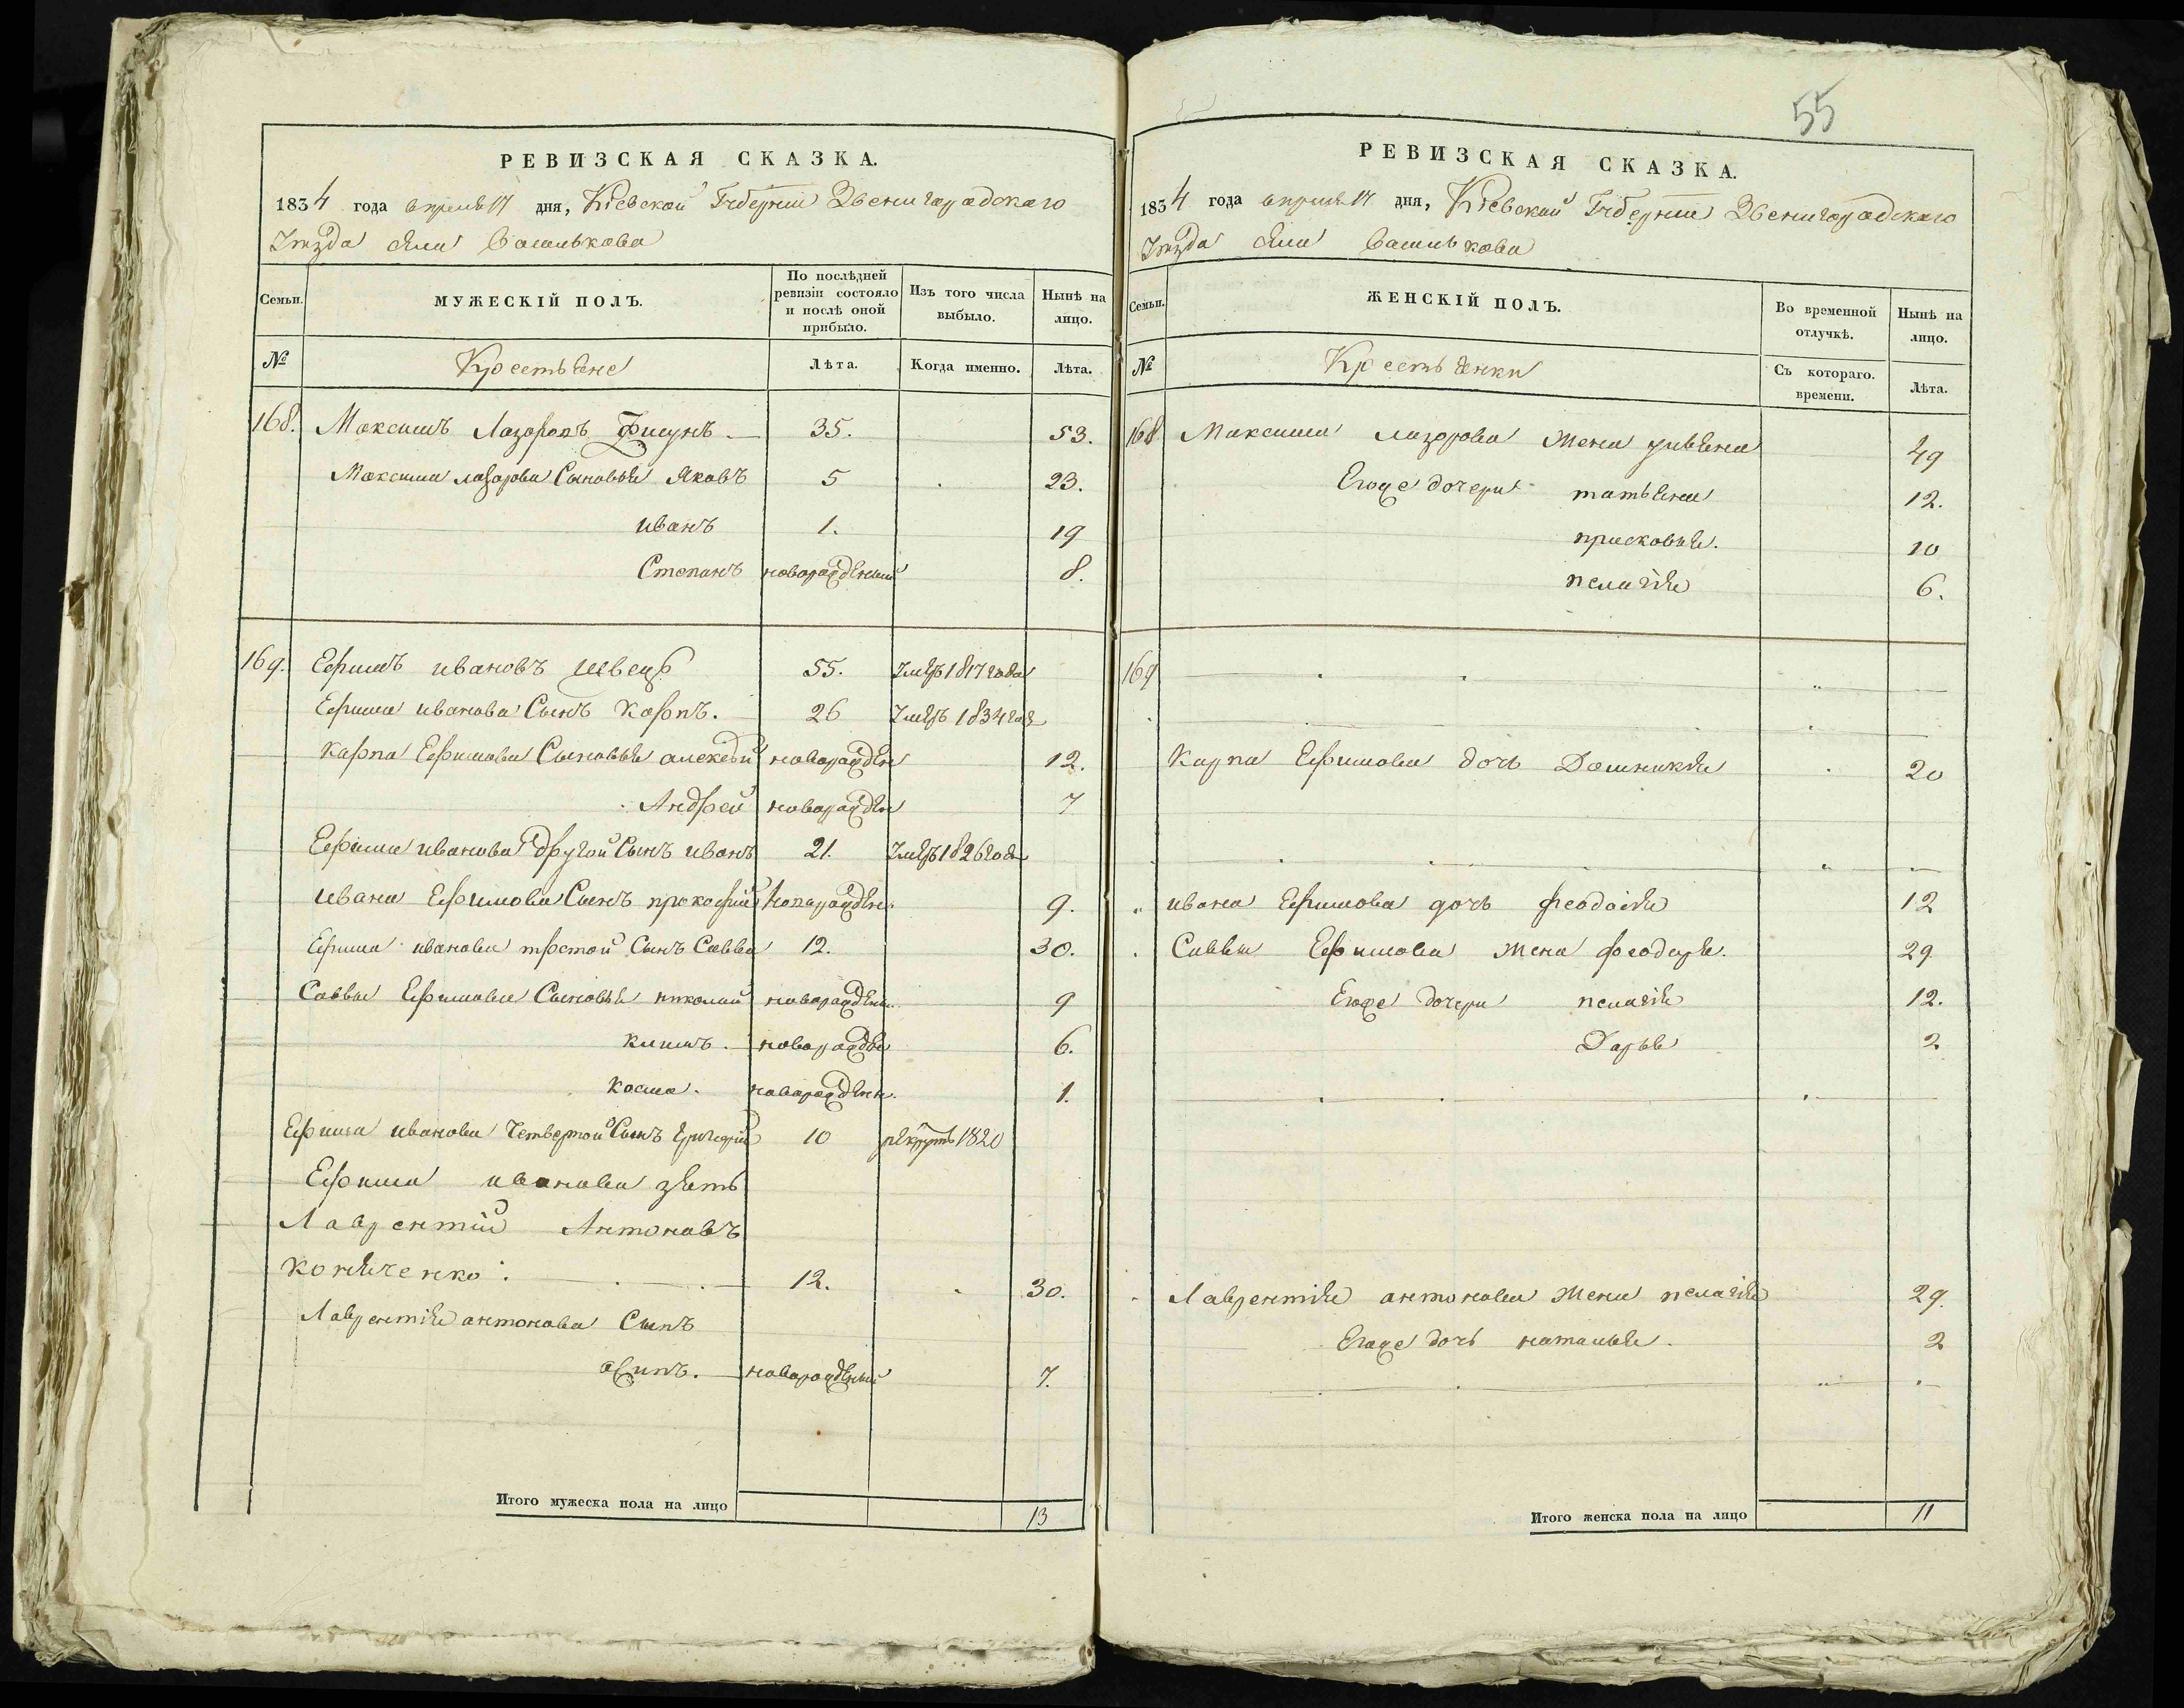 РЕВИЗСКАЯ СКАЗКА.
1834 года апреля 17 дня, Кіевской Губерніи Звенигородскаго
Уезда села Василькова
Семьи. МУЖЕСКІЙ ПОЛЪ. По послѣдней ревизіи состояло и послѣ оной прибыло. Изъ того числа выбыло. Нынѣ на лицо.
№ Крестьяне Лѣта. Когда именно. Лѣта.
168. Максимъ Лазоровъ Фисунъ 35. 53.
Максима лазорова Сыновья Яковъ 5 23.
иванъ 1. 19
Степанъ новорожденный 8.
169. Ефимъ ивановъ швецъ 55. Умеръ 1817 года
Ефима иванова Сынъ Карпъ. 26 Умеръ 1834 года
Карпа Ефимова Сыновья алексей новорожден 12.
Андрей новорожден 7
Ефима иванова другой Сынъ иванъ 21. Умеръ 1826 года
ивана Ефимова Сынъ прокофий новорожден. 9.
Ефима иванова третой Сынъ Савва 12. 30.
Саввы Ефимова Сыновья николай новорожден. 9
климъ. новорожден 6.
косма. новорожденн. 1.
Ефима иванова Четвертой Сынъ григорий 10 рекрутъ 1820
Ефима иванова зять
Лаврентий Антоновъ
коняченко. 12. 30.
Лаврентия антонова Сынъ
осипъ. новорожденый 7.
Итого мужеска пола на лицо 13
55
РЕВИЗСКАЯ СКАЗКА.
1834 года апреля 17 дня, Кіевской Губерніи Звенигородскаго
Уезда села Василькова
Семьи. ЖЕНСКІЙ ПОЛЪ. Во временной отлучкѣ. Нынѣ на лицо.
№ Крестьянки Съ котораго. времени. Лѣта.
168 Максима лазорова жена ульяна 49
Егоже дочери татьяна 12.
присковья. 10
пелагія 6.
169
Карпа Ефимова дочь Домникія 20
ивана Ефимова дочь феодосія 12
Саввы Ефимова жена феодора. 29
Егоже дочери пелагія 12.
Дарья 2
Лаврентия антонова жена пелагія 29.
Егоже дочь наталья. 2
Итого женска пола на лицо 11